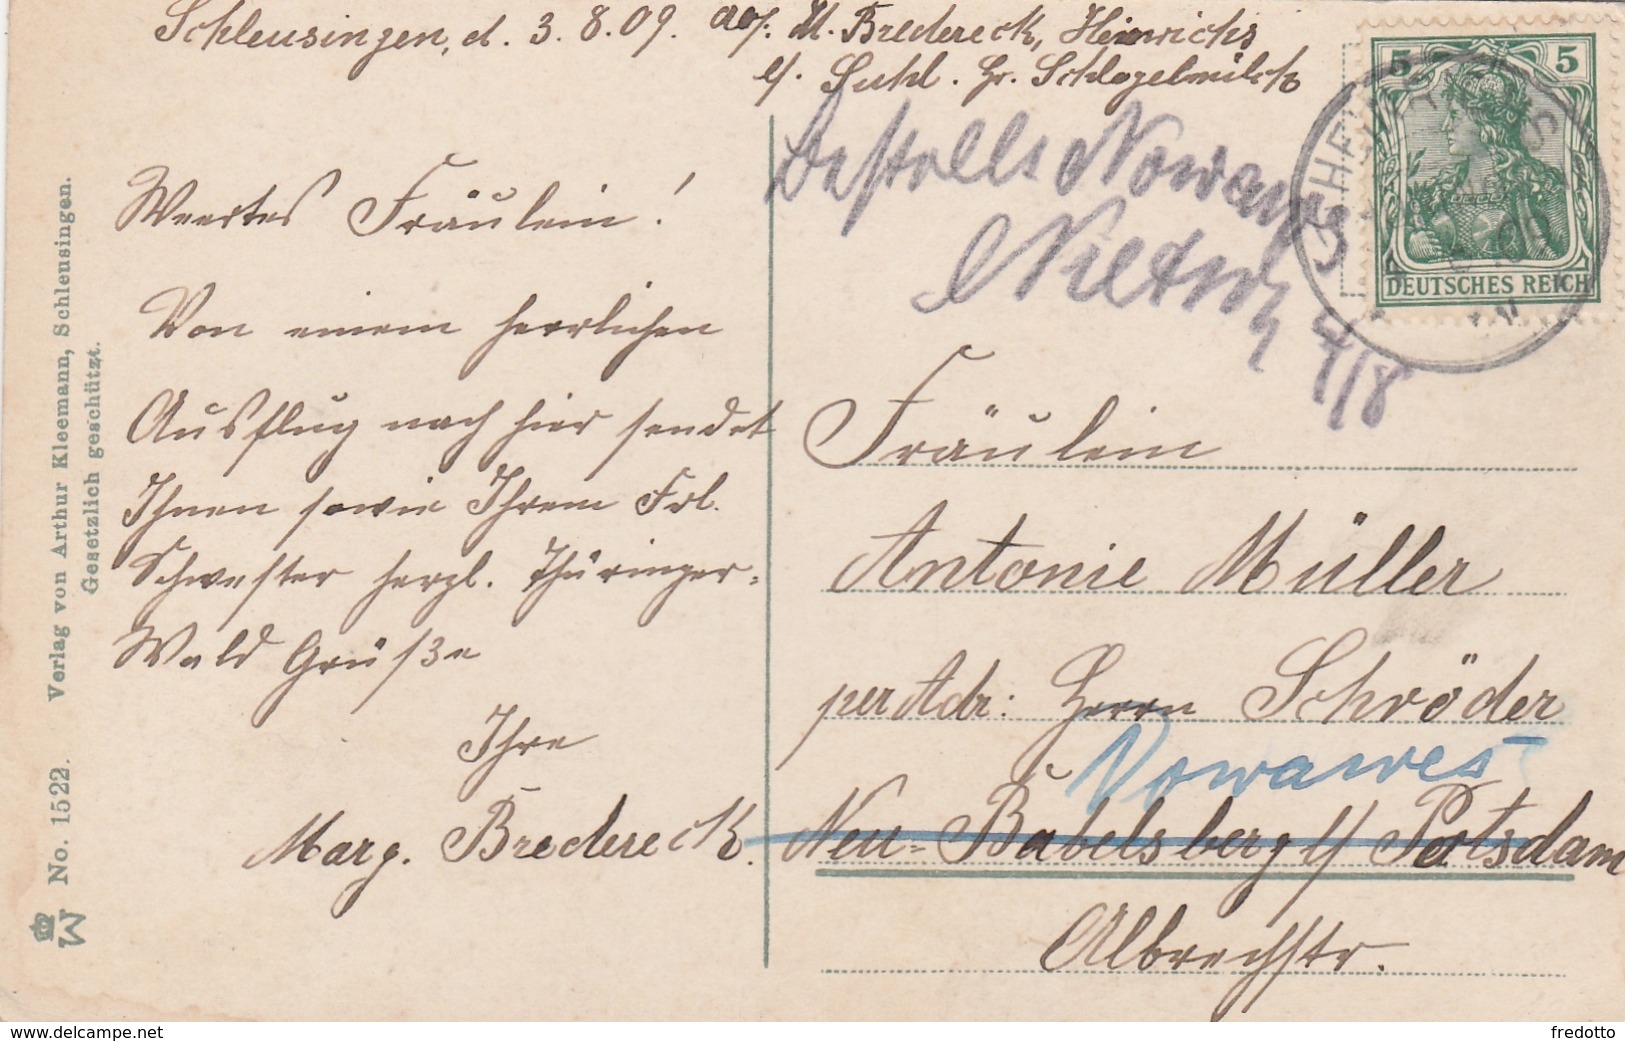 Schleusingen, d. 3. 8. 09.
M. Bredereck, Heinrichs
b/. Suhl. Hr. Schlegelmilch
5 5
DEUTSCHES REICH
Nowawes
4/8
Wertes Fräulein!
Von einem herrlichen
Ausflug nach hier sendet
Ihnen sowie Ihrem Frl.
Schwester herzl. Thüringer-
Wald Grüße
Ihre
Marg. Bredereck.
Fräulein
Antonie Müller
per Adr: Herrn Schröder
Nowawes
Neu-Babelsberg b/ Potsdam
Albrechtstr.
No. 1522. Verlag von Arthur Kleemann, Schleusingen.
Gesetzlich geschützt.
www.delcampe.net
fredotto